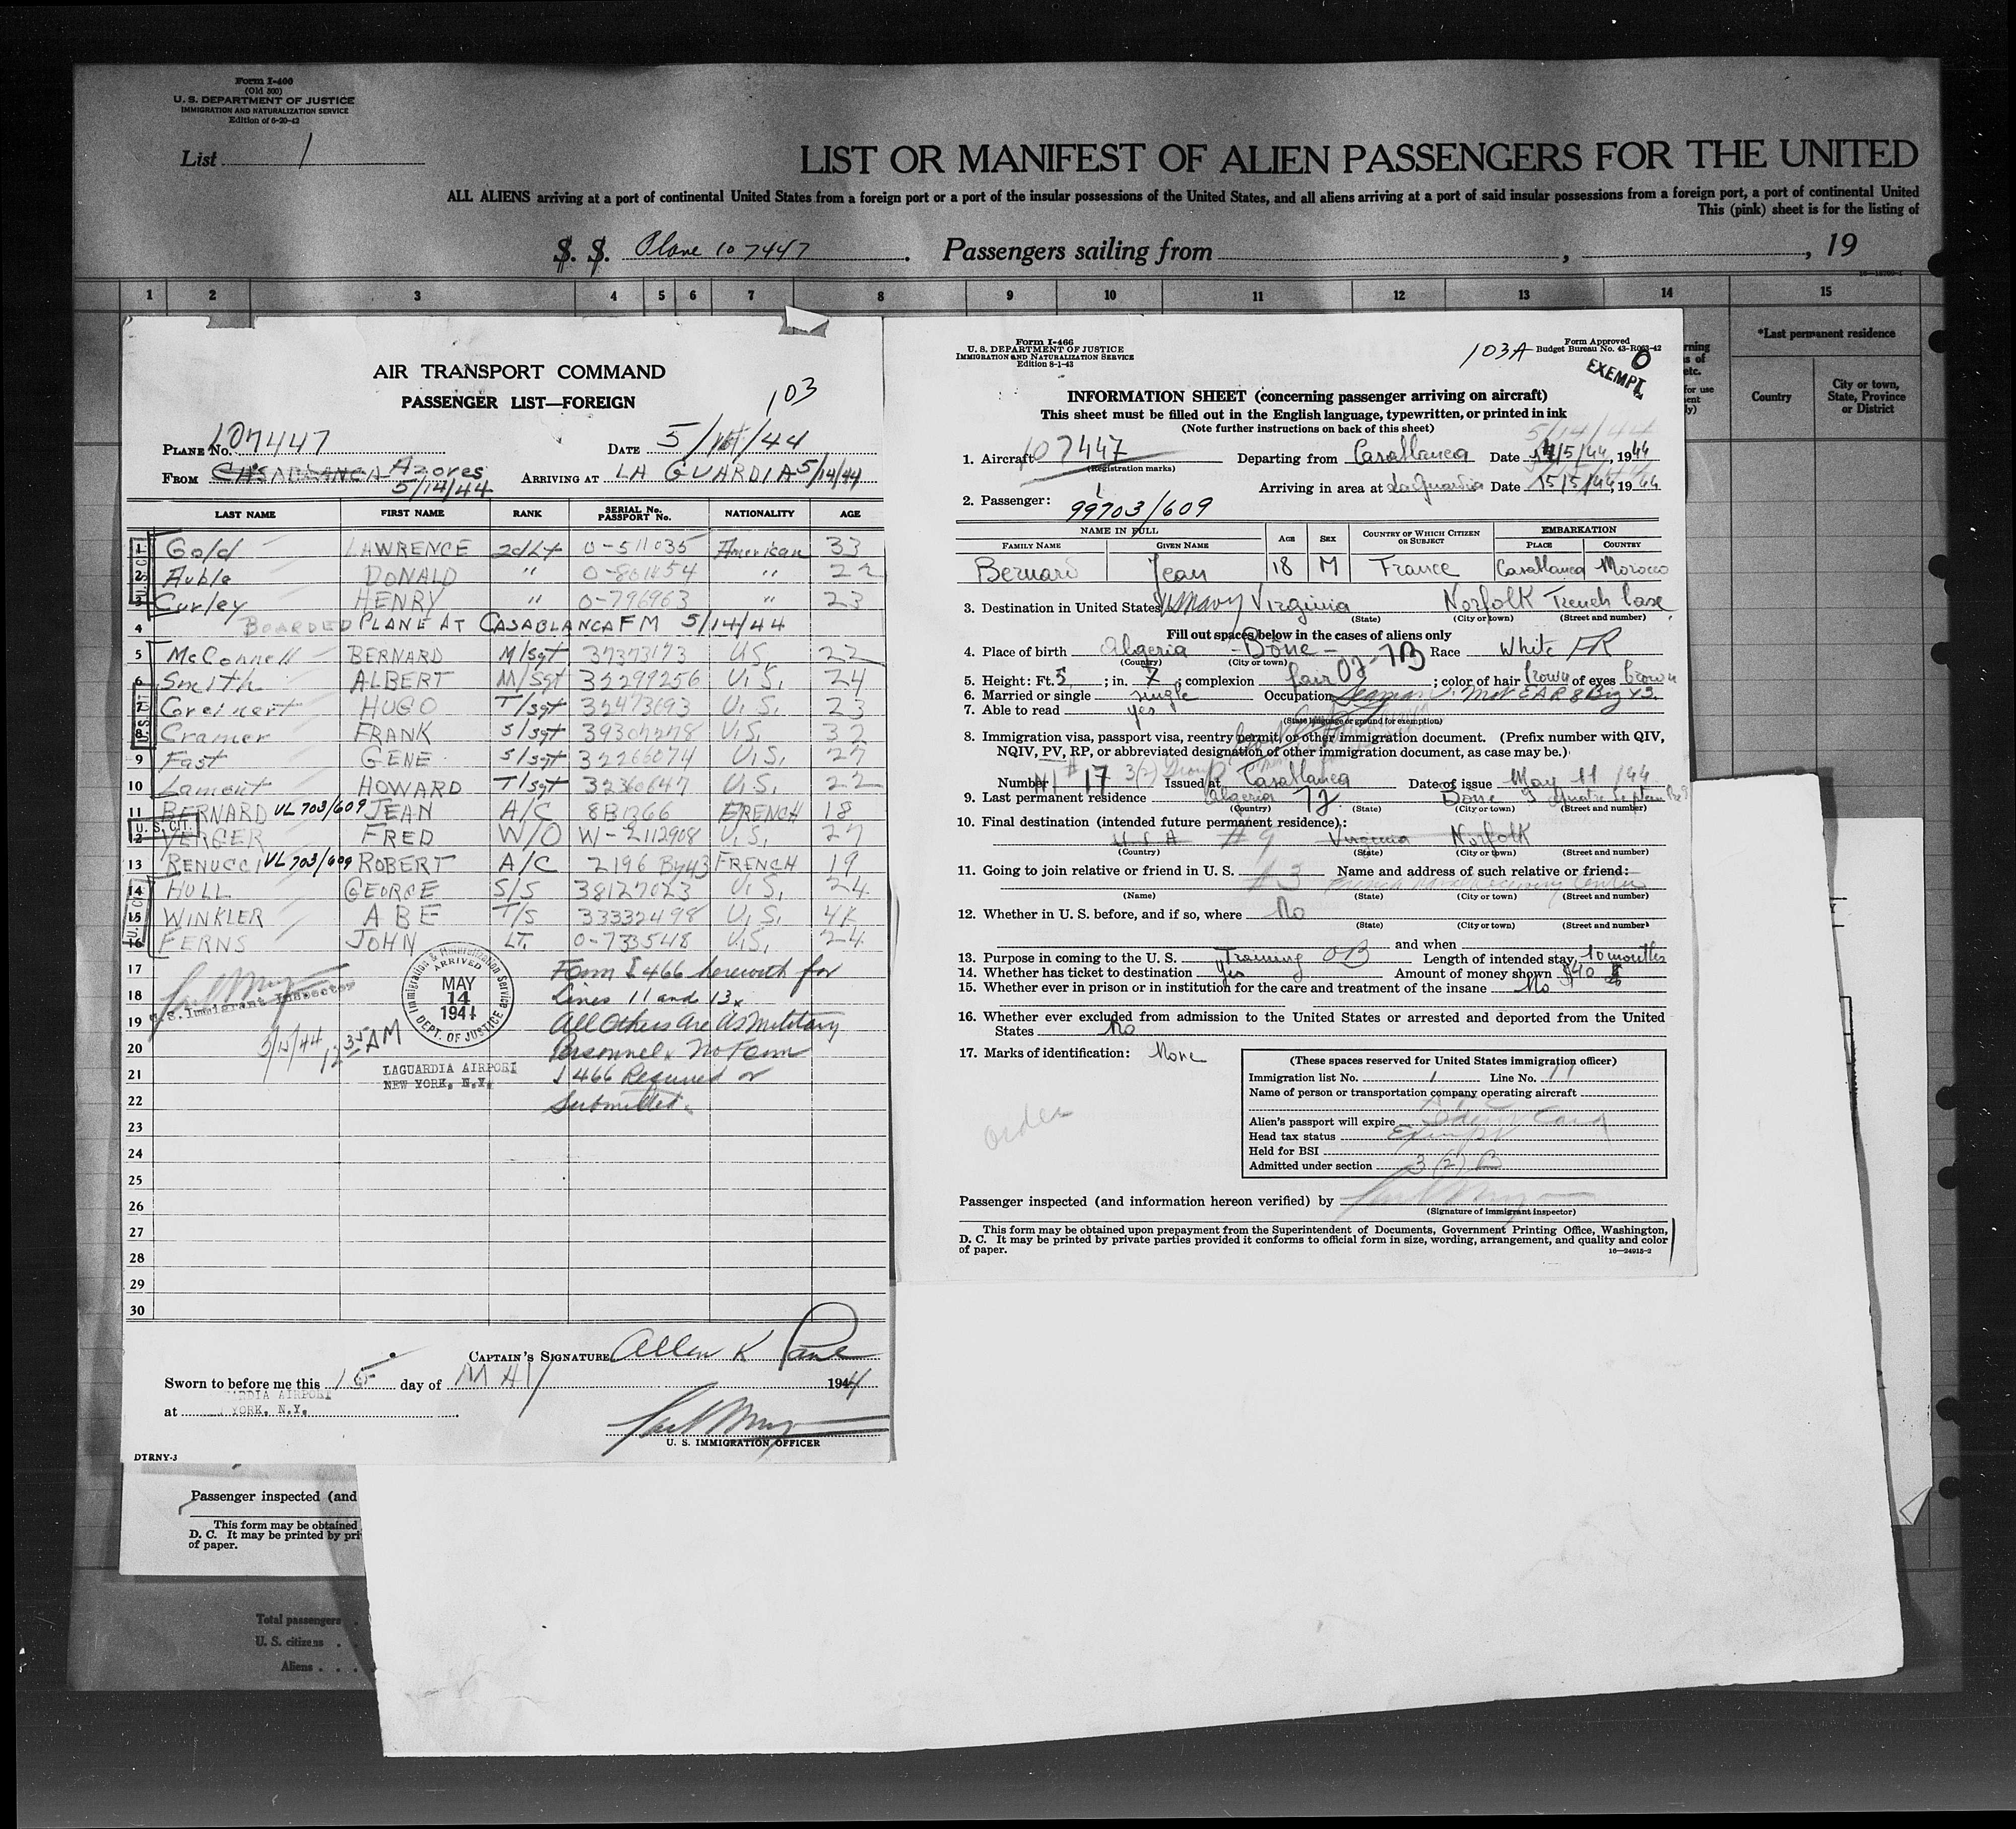 Form I-466
(Old 500)
U. S. DEPARTMENT OF JUSTICE
IMMIGRATION AND NATURALIZATION SERVICE
Edition of 6-20-42
List 1
LIST OR MANIFEST OF ALIEN PASSENGERS FOR THE UNITED
ALL ALIENS arriving at a port of continental United States from a foreign port or a port of the insular possessions of the United States, and all aliens arriving at a port of said insular possessions from a foreign port, a port of continental United
This (pink) sheet is for the listing of
S. S. Plane 107447. Passengers sailing from , , 19
1 2 3 4 5 6 7 8 9 10 11 12 13 14 15
*Last permanent residence
Country
City or town, State, Province or District
AIR TRANSPORT COMMAND
PASSENGER LIST—FOREIGN
103
PLANE No. 107447 DATE 5/14/44
FROM CASABLANCA Azores 5/14/44 ARRIVING AT LA GUARDIA 5/14/44
LAST NAME FIRST NAME RANK SERIAL No. PASSPORT No. NATIONALITY AGE
1 Gold LAWRENCE 2d Lt 0-511035 American 33
2 Auble DONALD " " 22
3 Curley HENRY " 0-796963 " 23
4 BOARDED PLANE AT CASABLANCA FM 5/14/44
5 McConnell BERNARD M/sgt 37373173 U.S. 22
6 Smith ALBERT M/Sgt 32299256 U.S. 24
7 HUGO T/sgt 32473693 U.S. 23
8 Cramer FRANK S/sgt U.S. 32
9 Fast GENE S/sgt 32266074 U.S. 27
10 Lamont HOWARD T/sgt 32360647 U.S. 22
11 BERNARD VL 703/609 JEAN A/C 8B1366 FRENCH 18
12 YERGER FRED W/O W-2112908 U.S. 27
U. S. CIT.
13 RENUCCI VL 703/609 ROBERT A/C 2196 By43 FRENCH 19
14 HULL GEORGE S/S 38127023 U.S. 24
15 WINKLER ABE T/S 33332498 U.S.
16 FERNS JOHN LT. 0-733548 U.S. 24
17
18
19
20
21
22
23
24
25
26
27
28
29
30
Form I 466 herewith for
Lines 11 and 13x
All Others are US Military
Personnel x No Form
I 466 Required or
Submitted.
U.S. Immigrant Inspector
Immigration & Naturalization Service
ARRIVED
MAY
14
1944
DEPT. OF JUSTICE
LAGUARDIA AIRPORT
NEW YORK, N.Y.
CAPTAIN'S SIGNATURE Allen K
Sworn to before me this 15 day of MAY 1944
at YORK, N.Y.
U. S. IMMIGRATION OFFICER
DTRNY-3
Passenger inspected (and
This form may be obtained
D. C. It may be printed by pri
of paper.
Total passengers
U. S. citizens
Aliens
Form I-466
U. S. DEPARTMENT OF JUSTICE
IMMIGRATION AND NATURALIZATION SERVICE
Edition 8-1-43
103A
Form Approved
Budget Bureau No. 43-R063-42
EXEMPT
INFORMATION SHEET (concerning passenger arriving on aircraft)
This sheet must be filled out in the English language, typewritten, or printed in ink
(Note further instructions on back of this sheet)
5/14/44
1. Aircraft 107447 Departing from Casablanca Date 14/5/44, 1944
(Registration marks)
Arriving in area at La Guardia Date 15/5/44, 1944
2. Passenger: 99703/609
NAME IN FULL AGE SEX COUNTRY OF WHICH CITIZEN OR SUBJECT EMBARKATION
FAMILY NAME GIVEN NAME PLACE COUNTRY
Bernard Jean 18 M France Casablanca Morocco
3. Destination in United States US Navy Virginia Norfolk
(State) (City or town) (Street and number)
Fill out spaces below in the cases of aliens only
4. Place of birth Algeria - Bone - Race White FR
(Country) (City or town)
5. Height: Ft. 5; in. 7; complexion fair; color of hair brown of eyes brown
6. Married or single single Occupation Seaman
7. Able to read yes
(State language or ground for exemption)
8. Immigration visa, passport visa, reentry permit, or other immigration document. (Prefix number with QIV,
NQIV, PV, RP, or abbreviated designation of other immigration document, as case may be.)
Number 17 3(2) Issued at Casablanca Date of issue May 11/44
9. Last permanent residence Algeria Bone
(Country) (State) (City or town) (Street and number)
10. Final destination (intended future permanent residence):
U.S.A #9 Virginia Norfolk
(Country) (State) (City or town) (Street and number)
11. Going to join relative or friend in U. S. #3 Name and address of such relative or friend:
French Naval Receiving Center
(Name) (State) (City or town) (Street and number)
12. Whether in U. S. before, and if so, where No
(State) (City or town) (Street and number)
and when
13. Purpose in coming to the U. S. Training OB Length of intended stay 10 months
14. Whether has ticket to destination Yes Amount of money shown $40
15. Whether ever in prison or in institution for the care and treatment of the insane No
16. Whether ever excluded from admission to the United States or arrested and deported from the United
States No
17. Marks of identification: None
order
(These spaces reserved for United States immigration officer)
Immigration list No. 1 Line No. 11
Name of person or transportation company operating aircraft
Alien's passport will expire
Head tax status Exempt
Held for BSI
Admitted under section 3(2) B
Passenger inspected (and information hereon verified) by
(Signature of immigrant inspector)
This form may be obtained upon prepayment from the Superintendent of Documents, Government Printing Office, Washington,
D. C. It may be printed by private parties provided it conforms to official form in size, wording, arrangement, and quality and color
of paper.
16—24915-2